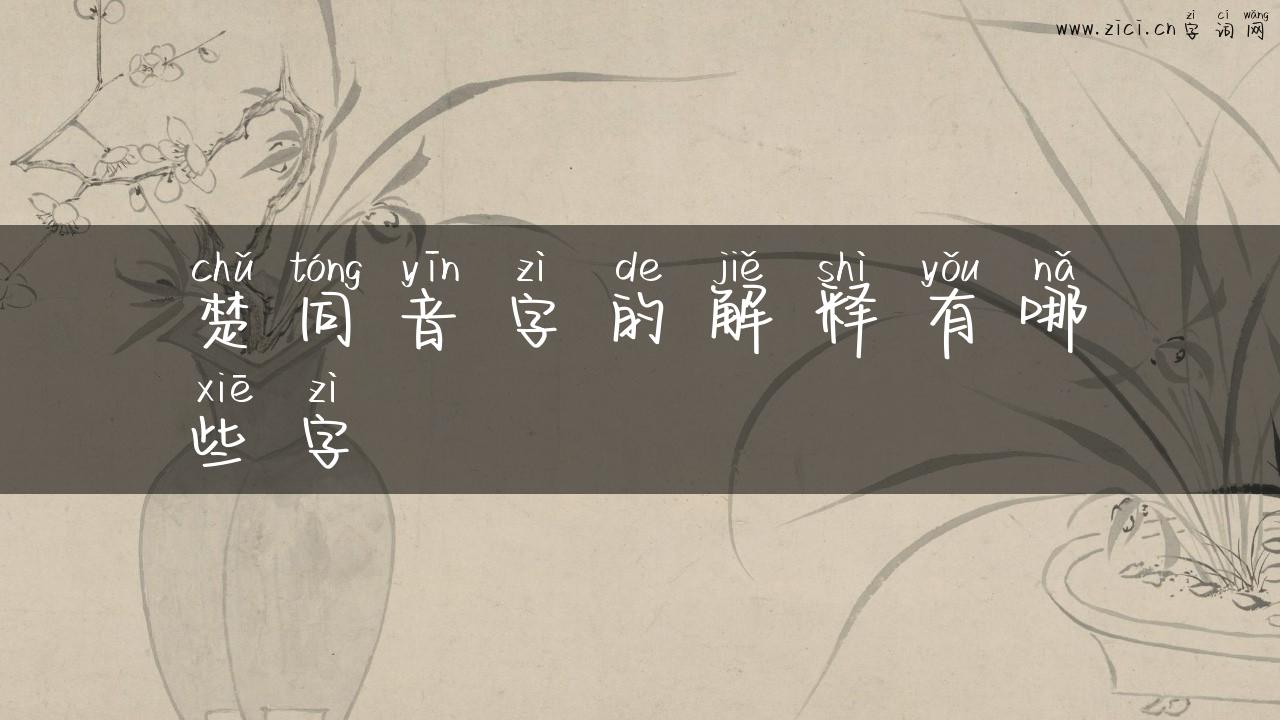 zì cí wǎng
www.zici.cn 字 词 网
chǔ tóng yīn zì de jiě shì yǒu nǎ
楚 同 音 字 的 解 释 有 哪
xiē zì
些 字